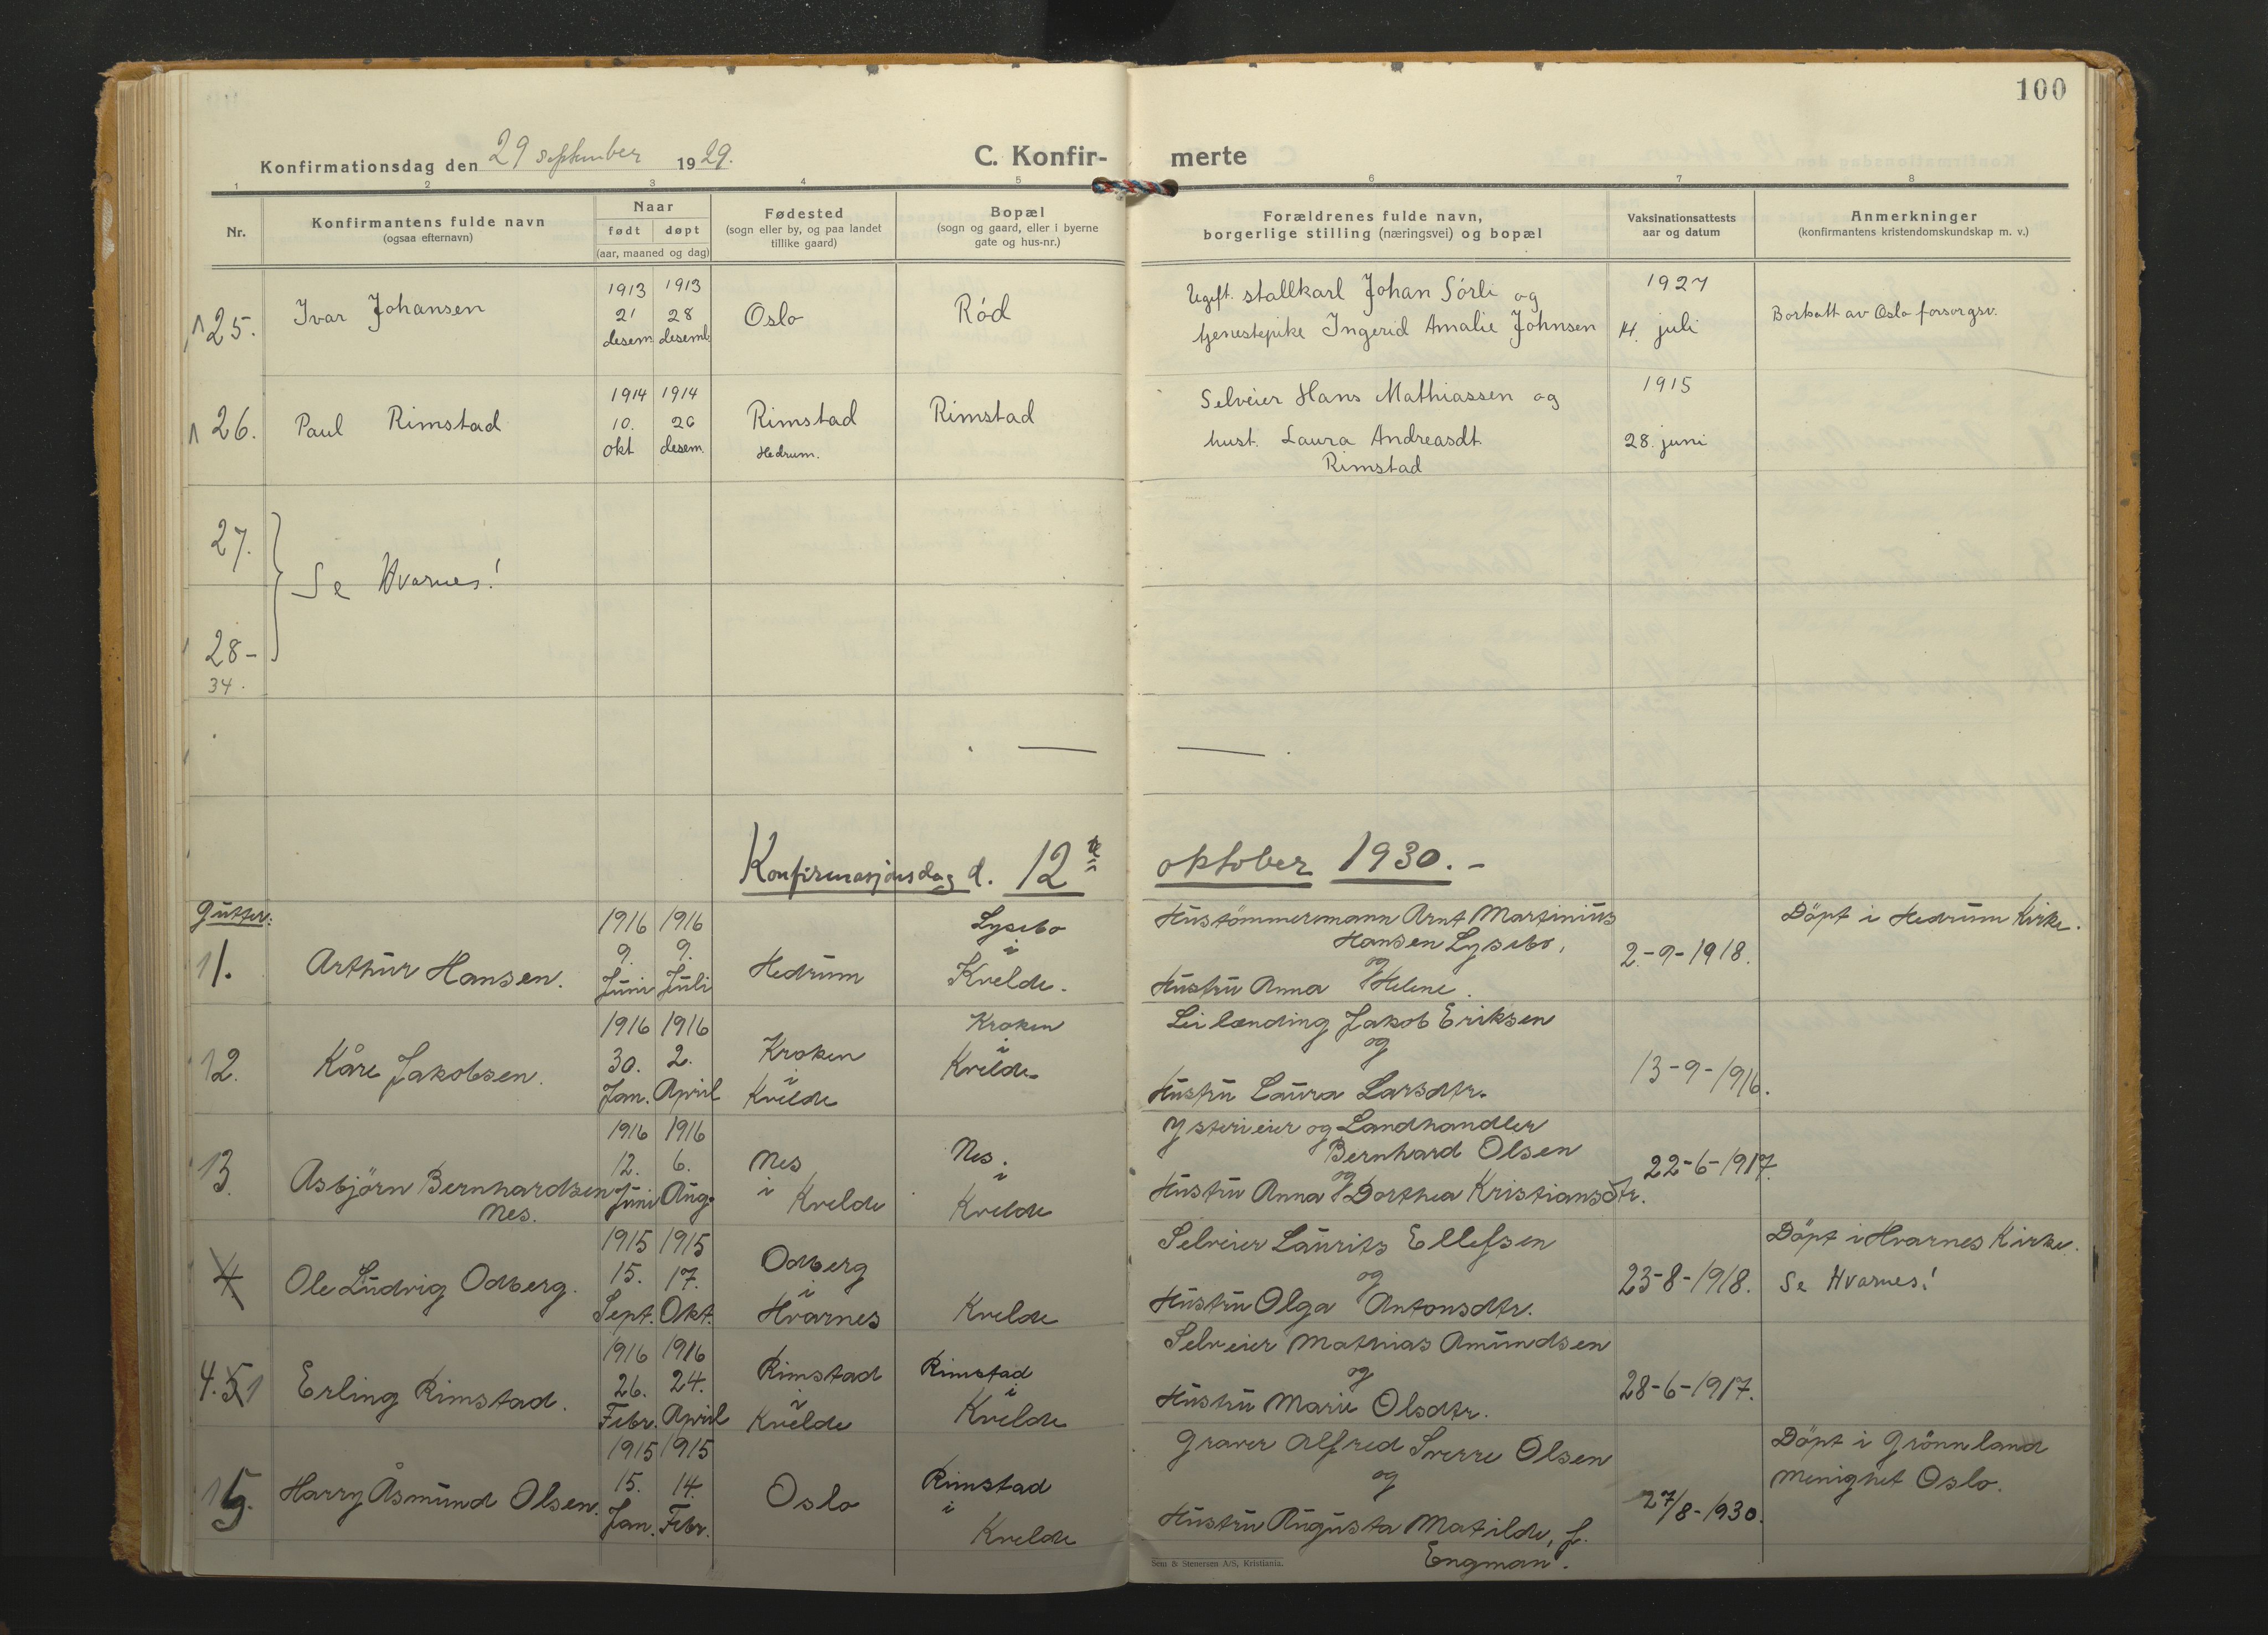 100
Konfirmationsdag den 29 september 1929.
C. Konfir- merte
1 2 3 4 5 6 7 8
Nr.
Konfirmantens fulde navn
(ogsaa efternavn)
Naar
født døpt
(aar, maaned og dag)
Fødested
(sogn eller by, og paa landet
tillike gaard)
Bopæl
(sogn og gaard, eller i byerne
gate og hus-nr.)
Forældrenes fulde navn,
borgerlige stilling (næringsvei) og bopæl
Vaksinationsattests
aar og datum
Anmerkninger
(konfirmantens kristendomskundskap m. v.)
25.
Ivar Johansen
1913 1913
21 28
desem. desemb.
Oslo
Ród
Ugift. stallkarl Johan Sórli og
tjenestepike Ingerid Amalie Johnsen
1927
14. juli
Bortsatt av Oslo forsorgsv.
26.
Paul Rimstad
1914 1914
10. 26
okt desem.
Rimstad
Hedrum.
Rimstad
Selveier Hans Mathiassen og
hust. Laura Andreasdt.
Rimstad
1915
28. juni
27.
Se Hvarnes!
28-
34.
Konfirmasjonsdag d. 12te oktober 1930.-
Gutter:
1.
Arthur Hansen.
1916 1916
9. 9.
Juni Juli
Hedrum
Lysebo
i
Kvelde.
Hustömmermann Arnt Martinius
Hansen Lysebo,
og
Hustru Anna Helene.
2-9-1918.
Döpt i Hedrum Kirke.
2.
Kåre Jakobsen.
1916 1916
30. 2.
Jan. April
Kroken
i
Kvelde
Kroken
i
Kvelde
Leilænding Jakob Eriksen
og
Hustru Laura Larsdtr.
13-9-1916.
3.
Asbjörn Bernhardsen
Nes.
1916 1916
12. 6.
Juni Aug.
Nes
i
Kvelde
Nes.
i
Kvelde
Ysterieier og Landhandler
Bernhard Olsen
og
Hustru Anna Dorthea Kristiansdtr.
22-6-1917.
4.
Ole Ludvig Odberg.
1915 1915
15. 17.
Sept. Okt.
Odberg
i
Hvarnes
Kvelde
Selveier Laurits Ellefsen
og
Hustru Olga Antonsdtr.
23-8-1918.
Döpt i Hvarnes Kirke.
Se Hvarnes!
4. 5
Erling Rimstad.
1916 1916
26. 24.
Febr. April
Rimstad
i
Kvelde
Rimstad
i
Kvelde
Selveier Mathias Amundsen
og
Hustru Marie Olsdtr.
28-6-1917.
5.
Harry Åsmund Olsen.
1915 1915
15. 14.
Jan. Febr.
Oslo
Rimstad
i
Kvelde
Graver Alfred Sverre Olsen
og
Hustru Augusta Matilde, f.
Engman.
27/8-1930.
Döpt i Grönnland
Menighet Oslo.
Sem & Stenersen A/S, Kristiania.